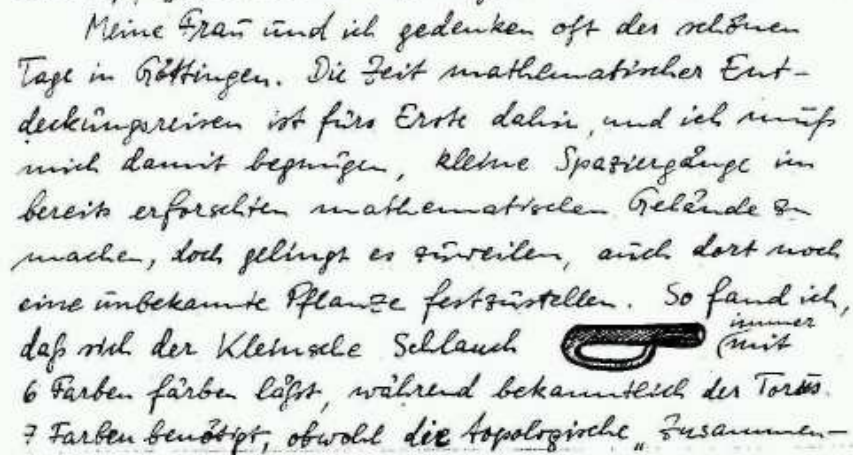 Meine Frau und ich gedenken oft der schönen
Tage in Göttingen. Die Zeit mathematischer Ent-
deckungsreisen ist fürs Erste dahin, und ich muß
mich damit begnügen, kleine Spaziergänge im
bereits erforschten mathematischen Gelände zu
machen, doch gelingt es zuweilen, auch dort noch
eine unbekannte Pflanze festzustellen. So fand ich,
daß sich der Kleinsche Schlauch (immer mit
6 Farben färben läßt, während bekanntlich der Torus
7 Farben benötigt, obwohl die topologische „Zusammen-